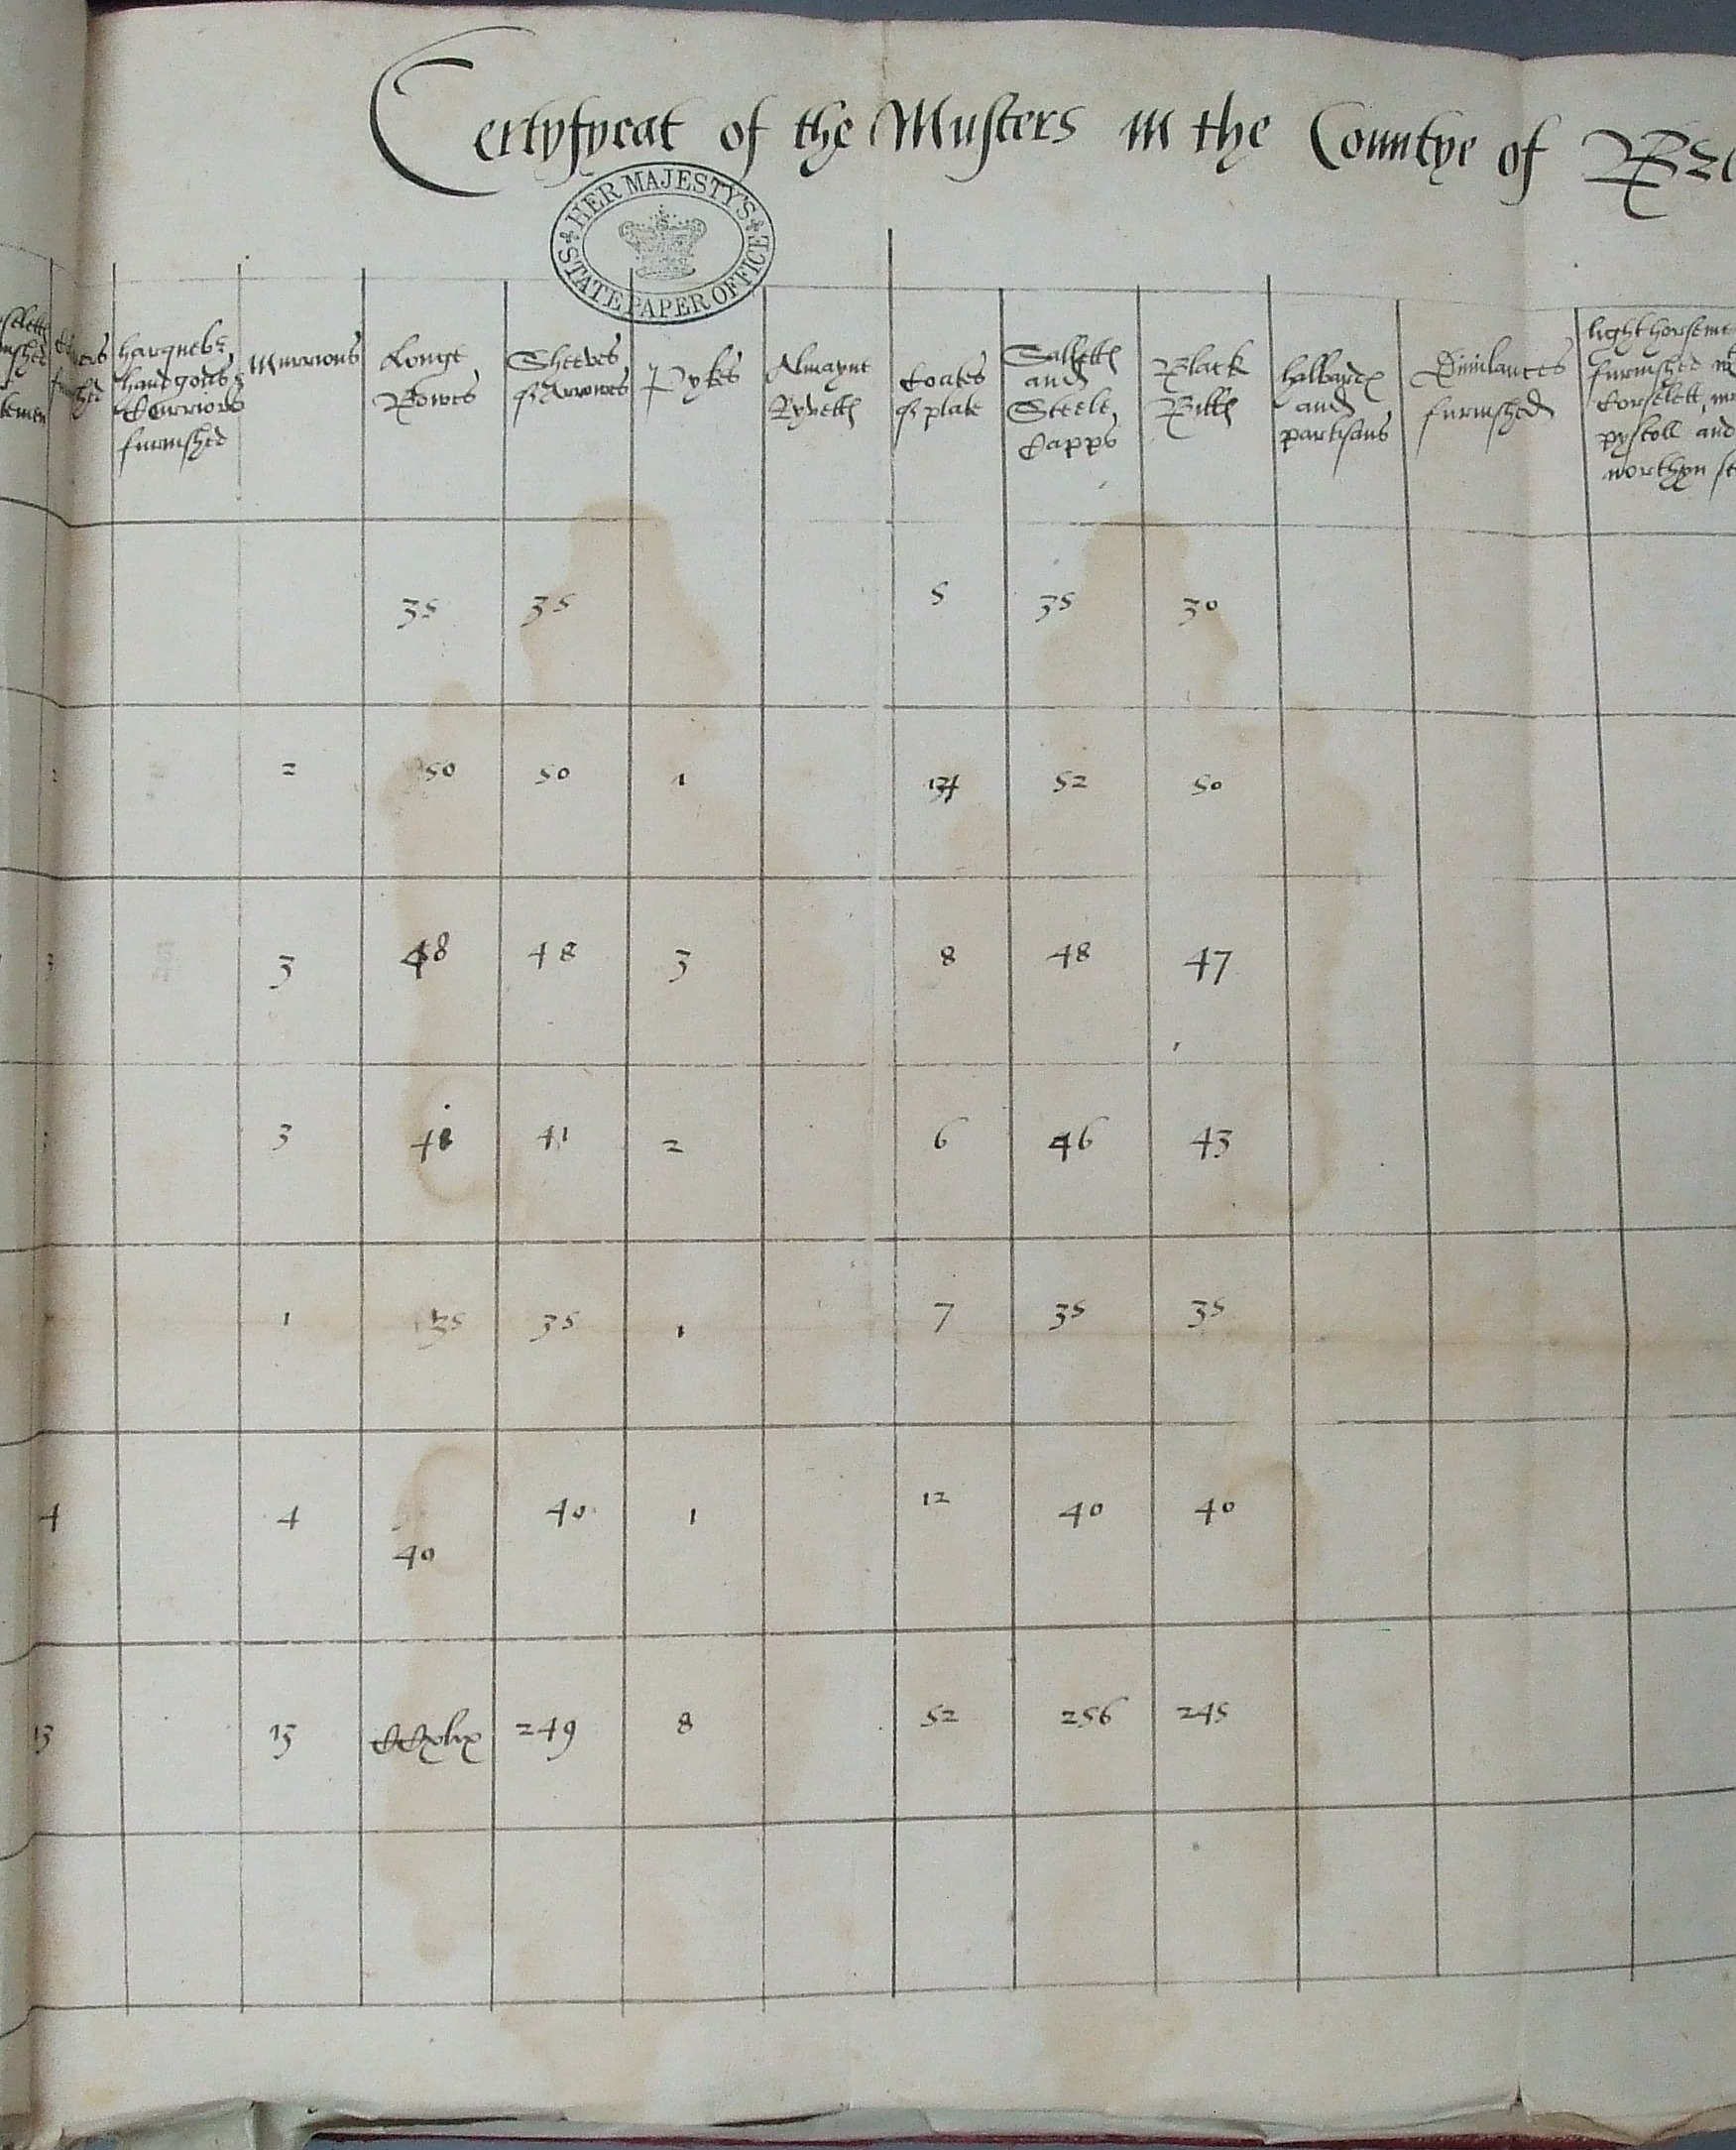 Certyfycat of the Musters in the Countye of
HER MAJESTY'S STATE PAPER OFFICE
harquebz, handgons, Curriors furnished
Murrions
Longe Bowes
Sheeves of Arrowes
Pykes
Almayne Ryvetts
Coates of plate
Salletts and Steele Capps
Black Bills
halbards and partisans
Dimilances furnished
light horseme furnished Corselett, pystoll and northyn
35 35 5 35 30
2 50 50 1 52 50
3 3 48 48 3 8 48 47
3 41 2 6 46 43
1 35 35 1 7 35 35
4 4 40 40 1 12 40 40
13 13 CCxlix 249 8 52 256 245